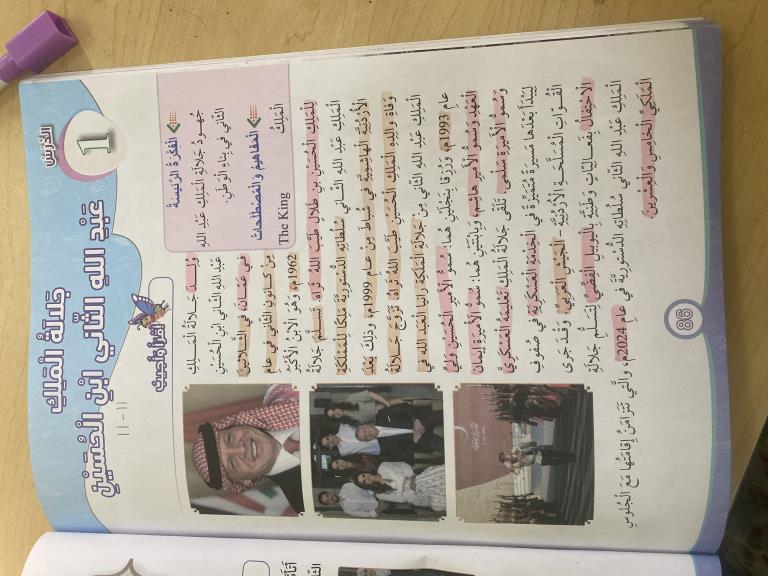 الدَّرْسُ
1
جَلالَةُ الْمَلِكِ
عَبْدِ اللهِ الثّاني ابْنِ الْحُسَيْنِ
١١ - ١١
أَقْرَأُ وَأُجيبُ
الْفِكْرَةُ الرَّئيسَةُ
جُهودُ جَلالَةِ الْمَلِكِ عَبْدِ اللهِ
الثّاني في بِناءِ الْوَطَنِ.
الْمَفاهيمُ وَالْمُصْطَلَحاتُ
الْمَلِكُ The King
وُلِدَ جَلالَةُ الْمَلِكِ
عَبْدُ اللهِ الثّاني ابْنُ الْحُسَيْنِ
في عَمّانَ، في الثَّلاثينَ
مِنْ كانونَ الثّاني في عام
1962م، وَهُوَ الِابْنُ الْأَكْبَرُ
لِلْمَلِكِ الْحُسَيْنِ بنِ طَلالٍ طَيَّبَ اللهُ ثَراهُ. تَسَلَّمَ جَلالَةُ
الْمَلِكِ عَبْدِ اللهِ الثّاني سُلُطاتِهِ الدُّسْتورِيَّةَ مَلِكًا لِلْمَمْلَكَةِ
الْأُرْدُنِيَّةِ الْهاشِمِيَّةِ في شُباطَ مِنْ عامِ 1999م، وَذلِكَ بَعْدَ
وَفاةِ والِدِهِ الْمَلِكِ الْحُسَيْنِ طَيَّبَ اللهُ ثَراهُ. تَزَوَّجَ جَلالَةُ
الْمَلِكِ عَبْدِ اللهِ الثّاني مِنْ جَلالَةِ الْمَلِكَةِ رانْيا الْعَبْدِ اللهِ في
عام 1993م، وَرُزِقا بِنَجْلَيْنِ هُما: سُمُوُّ الْأَميرِ الْحُسَيْنِ وَلِيُّ
الْعَهْدِ وَسُمُوُّ الْأَميرِ هاشِمٍ، وَبِابْنَتَيْنِ هُما: سُمُوُّ الْأَميرَةِ إيمانَ
وَسُمُوُّ الْأَميرَةِ سَلْمى. تَلَقّى جَلالَةُ الْمَلِكِ تَعْليمَهُ الْعَسْكَرِيَّ
لِيَبْدَأَ بَعْدَها مَسيرَةً مُتَمَيِّزَةً في الْخِدْمَةِ الْعَسْكَرِيَّةِ في صُفوفِ
الْقُوّاتِ الْمُسَلَّحَةِ الْأُرْدُنِيَّةِ – الْجَيْشِ الْعَرَبِيِّ. وَقَدْ جَرى
الِاحْتِفالُ بِفَعالِيّاتٍ وَطَنِيَّةٍ بِالْيوبيلِ الْفِضِّيِّ لِتَسَلُّمِ جَلالَةِ
الْمَلِكِ عَبْدِ اللهِ الثّاني سُلُطاتِهِ الدُّسْتورِيَّةَ في عامِ 2024م، وَالَّتي تَتَزامَنُ إِقامَتُها مَعَ الْجُلوسِ
الْمَلَكِيِّ الْخامِسِ وَالْعِشْرينَ.
86